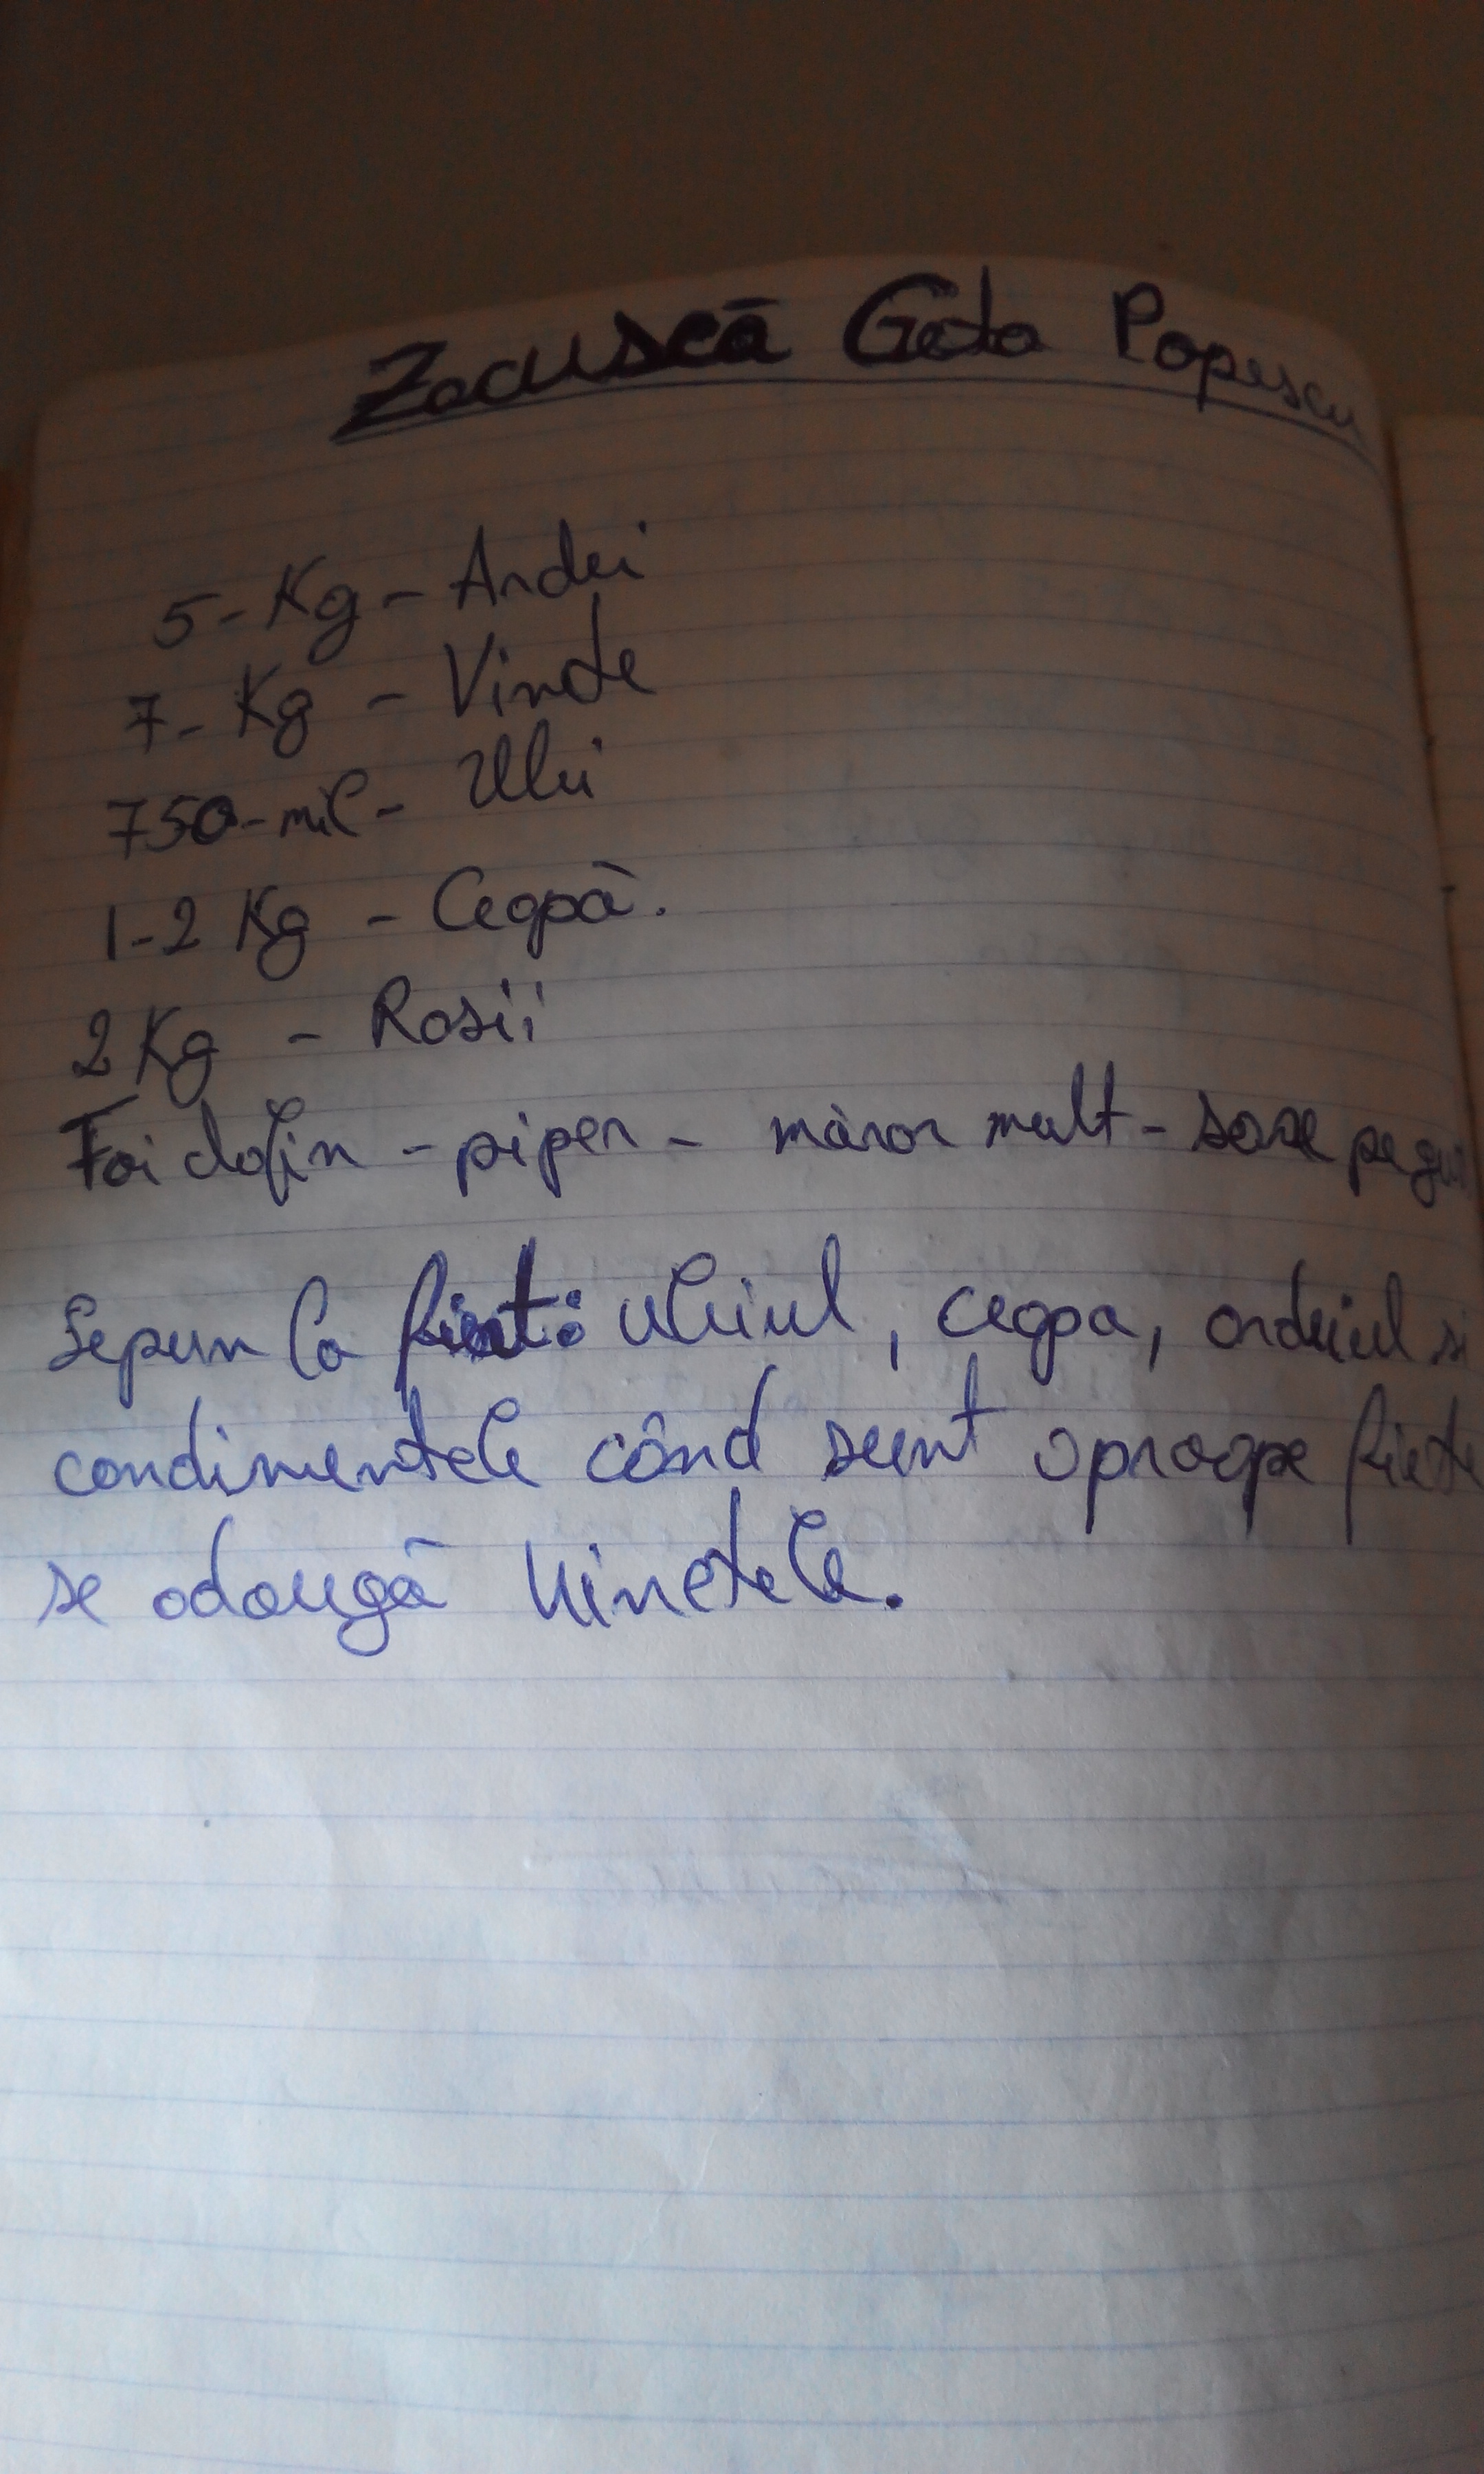 Zacuscă Geta Popescu
5-Kg-Ardei
7-Kg-Vinete
750-mil-Ulei
1-2 Kg-Ceapă.
2Kg-Rosii
Foi dafin-piper-mărar mult-sare pe
Sepun la fiert: uleiul, ceapa, ardeiul si
condimentele când sunt aproape fierte
se adaugă vinetele.